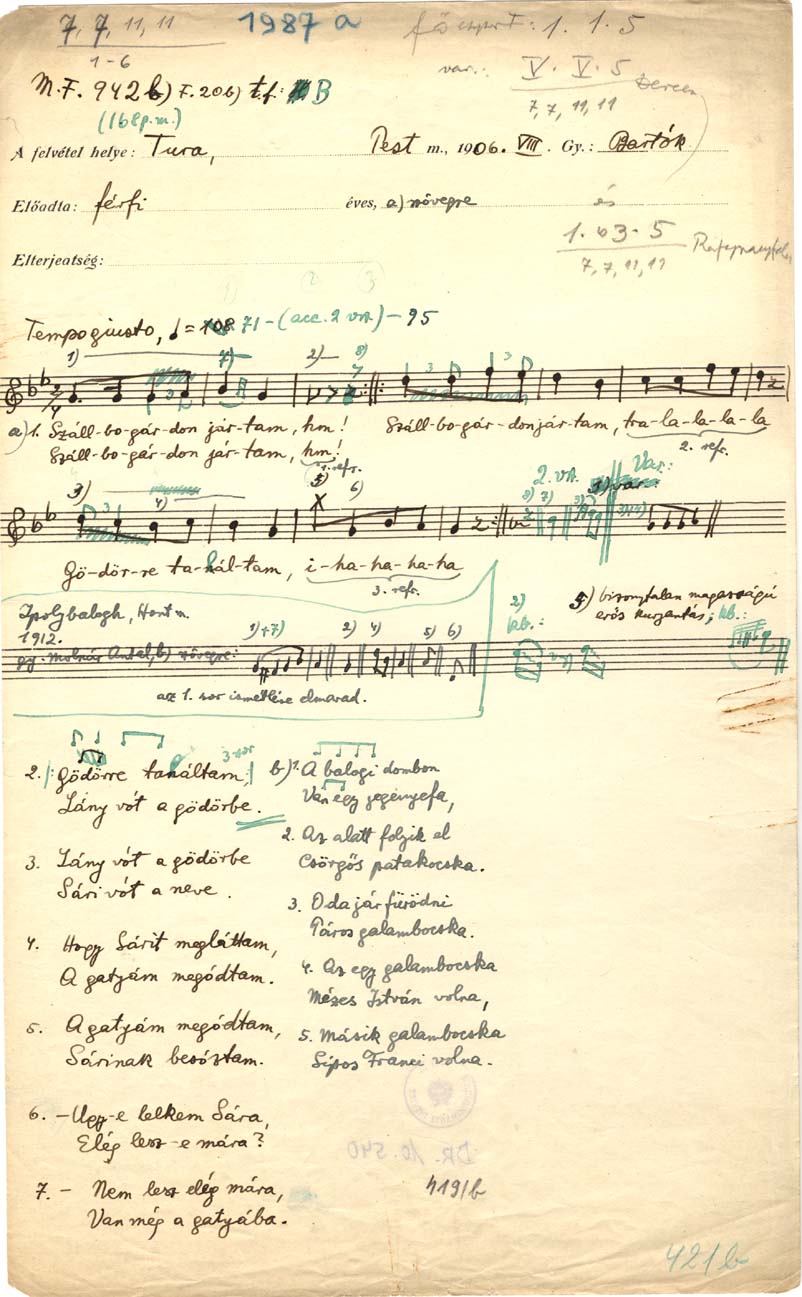 7, 7, 11, 11
1-6
1987 a
főcsport: 1. 1. 5
var.: V. V. 5
7, 7, 11, 11
M.F. 942 b) F. 206) t.f: B
(168p.m.)
A felvétel helye: Tura, Pest m., 1906. VIII. Gy.: Bartók
Előadta: férfi éves, a) szövegre
és
1. b3. 5
7, 7, 11, 11
Elterjeatség:
Tempo giusto, ♩ = 108 71 - (acc. 2 vrs.) - 95
1) 7) 2) 8)
a) 1. Száll-bo-gár-don jár-tam, hm! Száll-bo-gár-don jár-tam, tra-la-la-la-la
Száll-bo-gár-don jár-tam, hm!
1. refr. 2. refr.
3) 4) 5) 6) 2. vrs. Var.:
Gö-dör-re ta-hál-tam, i-ha-ha-ha-ha
3. refr.
Ipolybalogh, Hont m.
1912.
gy. Molnár Antal, b) szövegre:
1)+7) 2) 4) 5) 6)
2) kb.:
5) bizonytalan magasságú
erős kurjantás; kb.:
az 1. sor ismétlése elmarad.
3-sor
2. |: Gödörre taháltam, :|
Lány vót a gödörbe.
3. Lány vót a gödörbe
Sári vót a neve.
4. Hogy Sárit megláttam,
A gatyám megódtam.
5. A gatyám megódtam,
Sárinak besóztam.
6. - Ugy-e lelkem Sára,
Elég lesz-e mára?
7. - Nem lesz elég mára,
Van még a gatyába.
b) 1. A balogi dombon
Van egy jegenyefa,
2. Az alatt folyik el
Csörgős patakocska.
3. Oda jár fürödni
Páros galambocska.
4. Az egy galambocska
Mézes István volna,
5. Másik galambocska
Sípos Franci volna.
DR. 10.540
419/b
421b